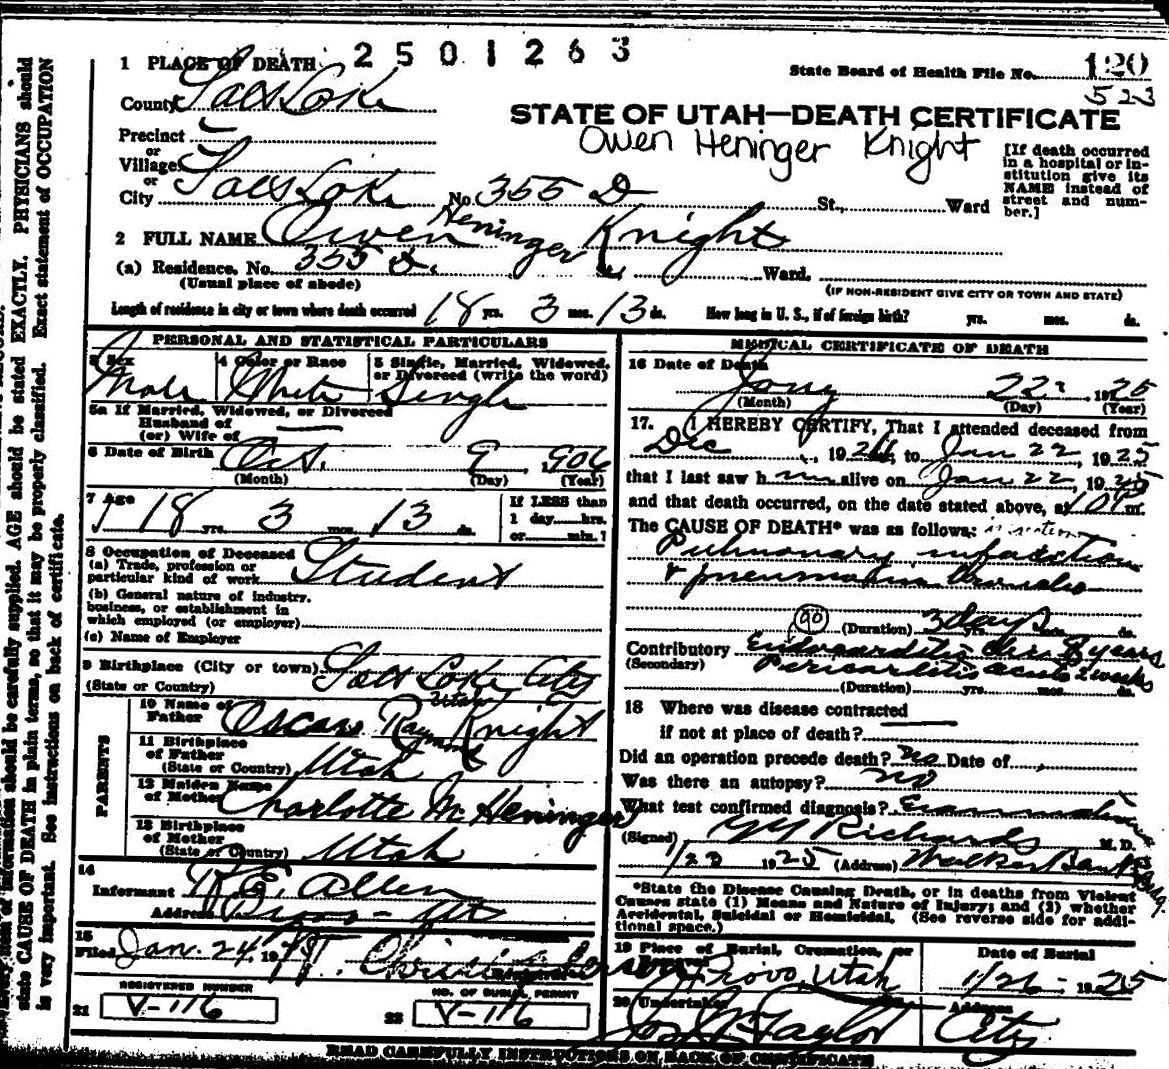 2501263
1 PLACE OF DEATH
State Board of Health File No. 120
523
County Salt Lake
STATE OF UTAH—DEATH CERTIFICATE
Owen Heninger Knight
Precinct
or
Village
or
City Salt Lake No. 355 D St., Ward
[If death occurred
in a hospital or in-
stitution give its
NAME instead of
street and num-
ber.]
2 FULL NAME Owen Heninger Knight
(a) Residence. No. 355 D. St. Ward.
(Usual place of abode)
(IF NON-RESIDENT GIVE CITY OR TOWN AND STATE)
Length of residence in city or town where death occurred 18 yrs. 3 mos. 13 ds. How long in U. S., if of foreign birth? yrs. mos. ds.
PERSONAL AND STATISTICAL PARTICULARS
3 Sex Male
4 Color or Race White
5 Single, Married, Widowed,
or Divorced (write the word)
Single
5a If Married, Widowed, or Divorced
Husband of
(or) Wife of
6 Date of Birth Oct. 9, 1906
(Month) (Day) (Year)
7 Age 18 yrs. 3 mos. 13 ds.
If LESS than
1 day......hrs.
or......min.]
8 Occupation of Deceased
(a) Trade, profession or
particular kind of work Student
(b) General nature of industry,
business, or establishment in
which employed (or employer)
(c) Name of Employer
9 Birthplace (City or town) Salt Lake City
(State or Country) Utah
PARENTS
10 Name of
Father Oscar Raymond Knight
11 Birthplace
of Father
(State or Country) Utah
12 Maiden Name
of Mother Charlotte M. Heninger
13 Birthplace
of Mother
(State or Country) Utah
14
Informant R. E. Allen
Address Provo - Ut
15
Filed Jan. 24, 1925 T.
Registrar
REGISTERED NUMBER
21 V-116
NO. OF BURIAL PERMIT
22 V-116
MEDICAL CERTIFICATE OF DEATH
16 Date of Death
Jany 22, 1925
(Month) (Day) (Year)
17. I HEREBY CERTIFY, That I attended deceased from
Dec, 1924, to Jan 22, 1925
that I last saw h im alive on Jan 22, 1925
and that death occurred, on the date stated above, at 10 P m.
The CAUSE OF DEATH* was as follows:
Pulmonary infarction
& pneumonia
90 (Duration) 3 days yrs. mos. ds.
Contributory Endocarditis chr. 8 years
(Secondary) Pericarditis acute 2 weeks
(Duration) yrs. mos. ds.
18 Where was disease contracted
if not at place of death?
Did an operation precede death? no Date of
Was there an autopsy? no
What test confirmed diagnosis? Examination
(Signed) G G Richards M. D.
1/23 1925 (Address) Walker Bank Bldg.
*State the Disease Causing Death, or in deaths from Violent
Causes state (1) Means and Nature of Injury; and (2) whether
Accidental, Suicidal or Homicidal. (See reverse side for addi-
tional space.)
19 Place of Burial, Cremation, or
Removal Provo, Utah
Date of Burial
1/26 - 1925
20 Undertaker
Jos. Wm Taylor
Address
City
READ CAREFULLY INSTRUCTIONS ON BACK OF CERTIFICATE
of information should be carefully supplied. AGE should be stated EXACTLY. PHYSICIANS should
state CAUSE OF DEATH in plain terms, so that it may be properly classified. Exact statement of OCCUPATION
is very important. See instructions on back of certificate.